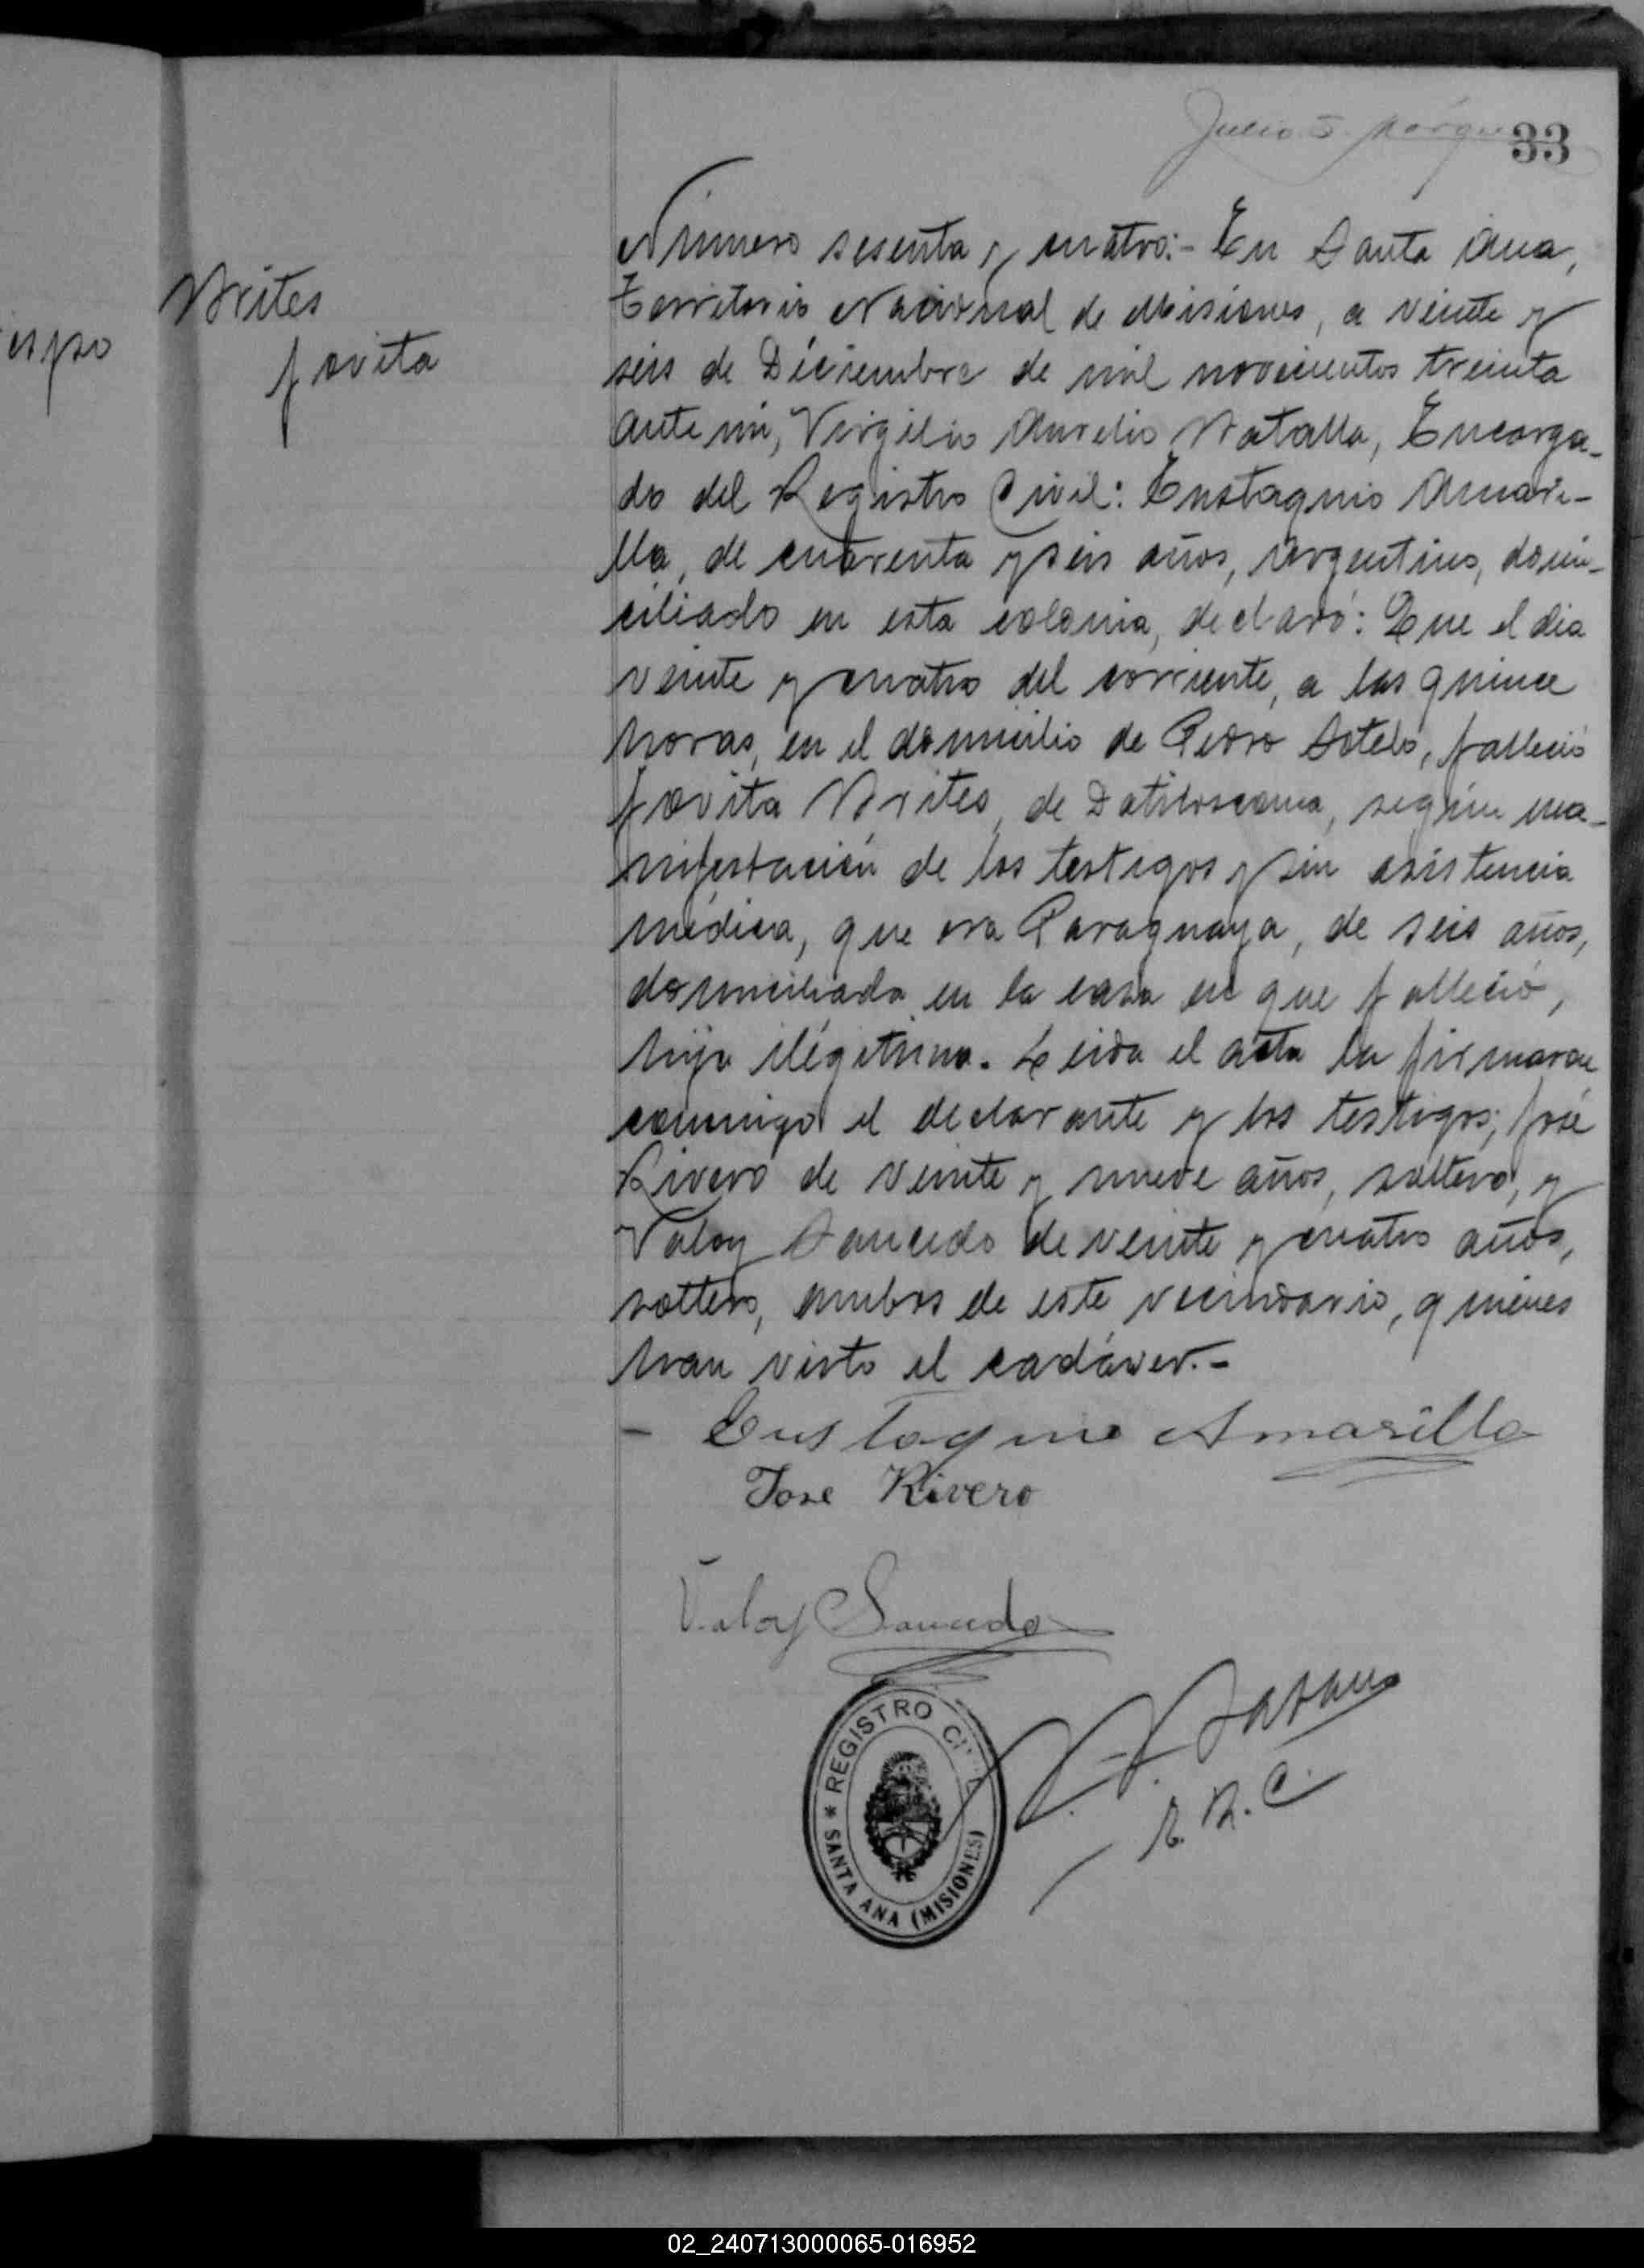 Julio S. Márqu
33
Brites
Jovita
espo
Número sesenta y cuatro:- En Santa Ana,
Territorio Nacional de Misiones, a veinte y
seis de Diciembre de mil novecientos treinta
ante mi, Virgilio Aurelio Batalla, Encarga-
do del Registro Civil: Eustaquio Amari-
lla, de cuarenta y seis años, Argentino, domi-
ciliado en esta colonia, declaró: Que el dia
veinte y cuatro del corriente, a las quince
horas, en el domicilio de Pedro Sotelo, falleció
Jovita Brites, de, según ma-
nifestación de los testigos y sin asistencia
médica, que era Paraguaya, de seis años,
domiciliada en la casa en que falleció,
hija ilégitima. Leida el acta la firmaron
conmigo el declarante y los testigos; José
Rivero de veinte y nueve años, soltero, y
Valoy Saucedo de veinte y cuatro años,
soltero, ambos de este vecindario, quienes
han visto el cadáver.-
- Eustaquio Amarilla
Jose Rivero
Valoy Saucedo
E. R. C.
* REGISTRO CIVIL
SANTA ANA (MISIONES)
02_240713000065-016952